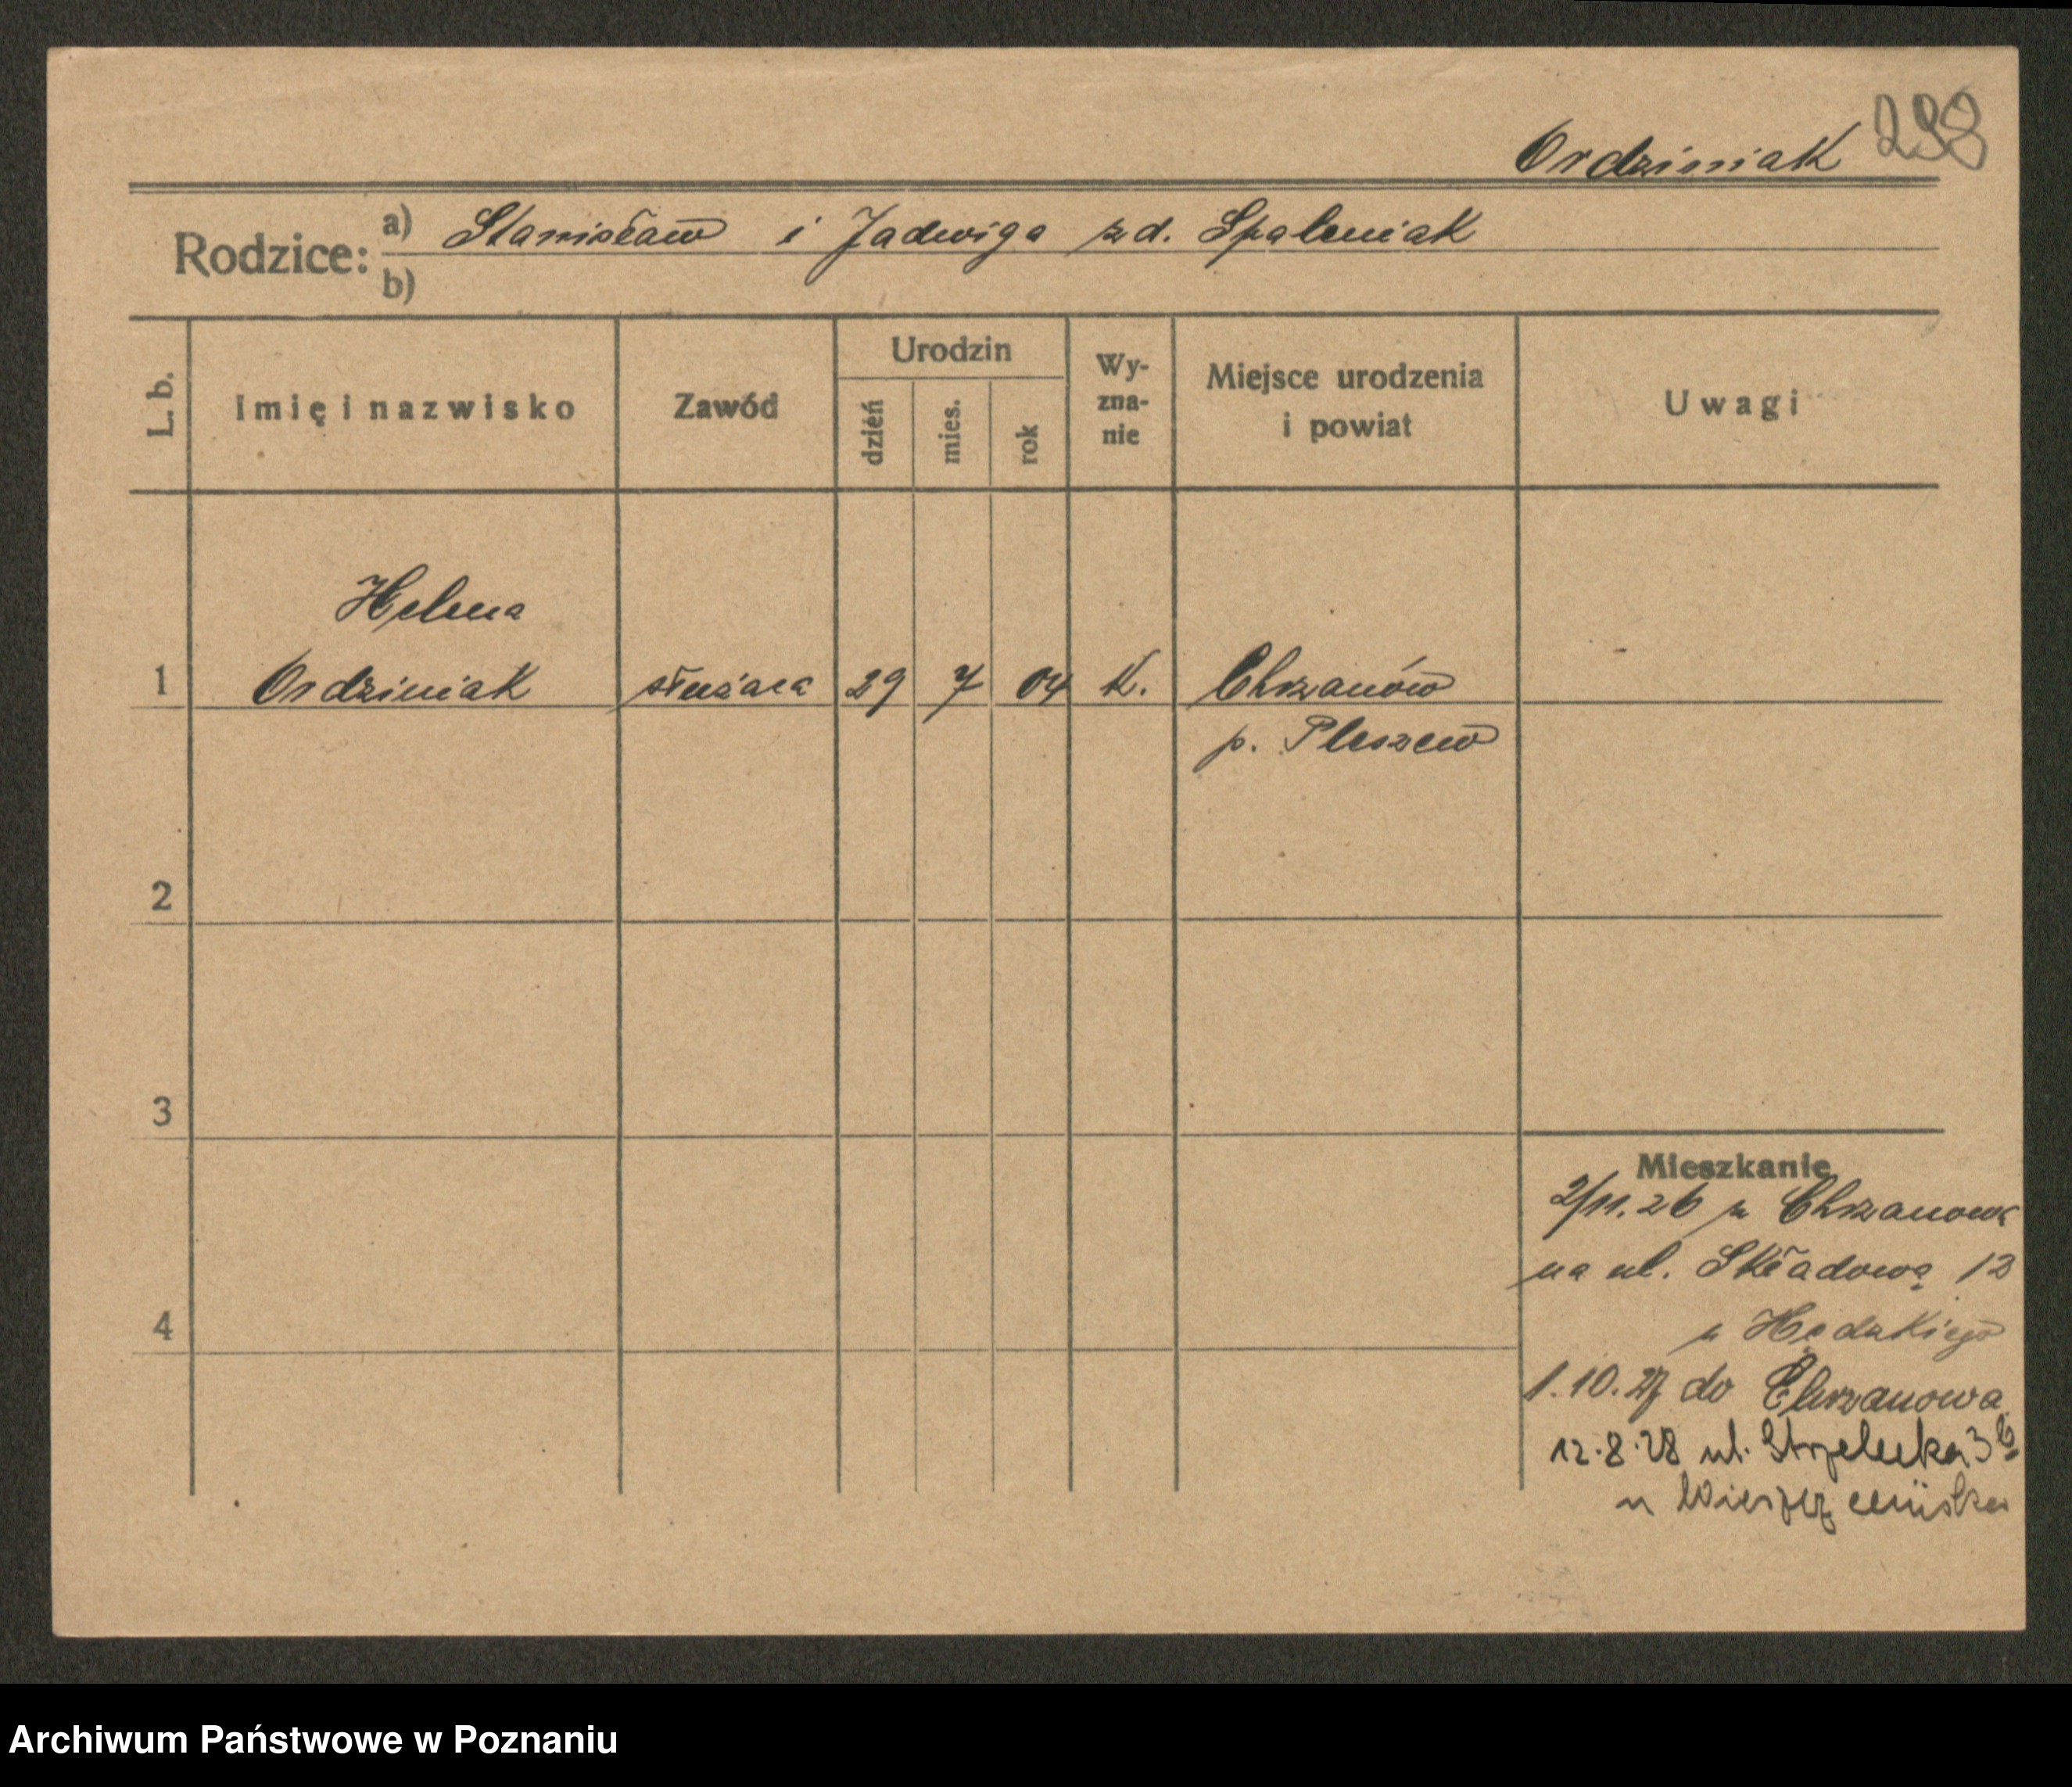 Ordziniak 298
Rodzice: a) Stanisław i Jadwiga zd. Spaleniak
b)
L. b.
Imię i nazwisko
Zawód
Urodzin
dzień
mies.
rok
Wy-
zna-
nie
Miejsce urodzenia
i powiat
Uwagi
Helena
1 Ordziniak służąca 29 7 04 K. Chrzanów
p. Pleszew
2
3
4
Mieszkanie
2/11.26 z Chrzanowa
na ul. Składową 12
u
1.10.27 do Chrzanowa
12.8.28 ul. Strzelecka 36
u
Archiwum Państwowe w Poznaniu